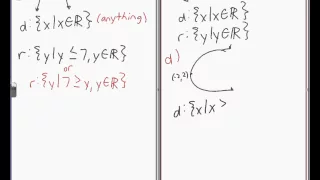 d: {x|x∈ℝ} (anything)
r: {y|y ≤ 7, y∈ℝ}
or
r: {y|7 ≥ y, y∈ℝ}
d: {x|x∈ℝ}
r: {y|y∈ℝ}
d)
d: {x|x >